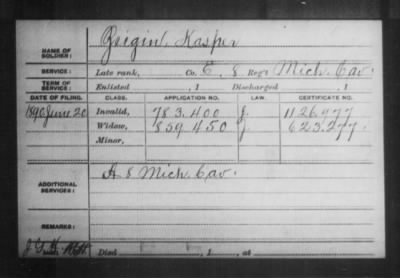 NAME OF SOLDIER: Zsigin, Kasper
SERVICE: Late rank, Co. E, 8 Reg't Mich. Cav.
TERM OF SERVICE: Enlisted , 1 Discharged , 1
DATE OF FILING. CLASS. APPLICATION NO. LAW. CERTIFICATE NO.
1890 June 20 Invalid, 783.400 J. 1126.977
Widow, 859.450 J. 623.277
Minor,
ADDITIONAL SERVICES: A 8 Mich Cav.
REMARKS:
Died , 1 , at